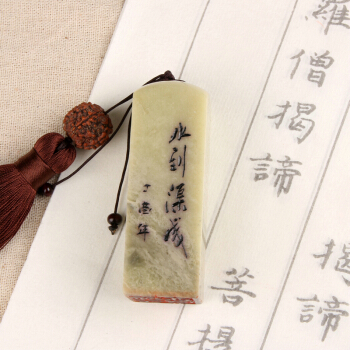 羅
僧揭諦
揭諦
菩
水到渠成
丁酉年